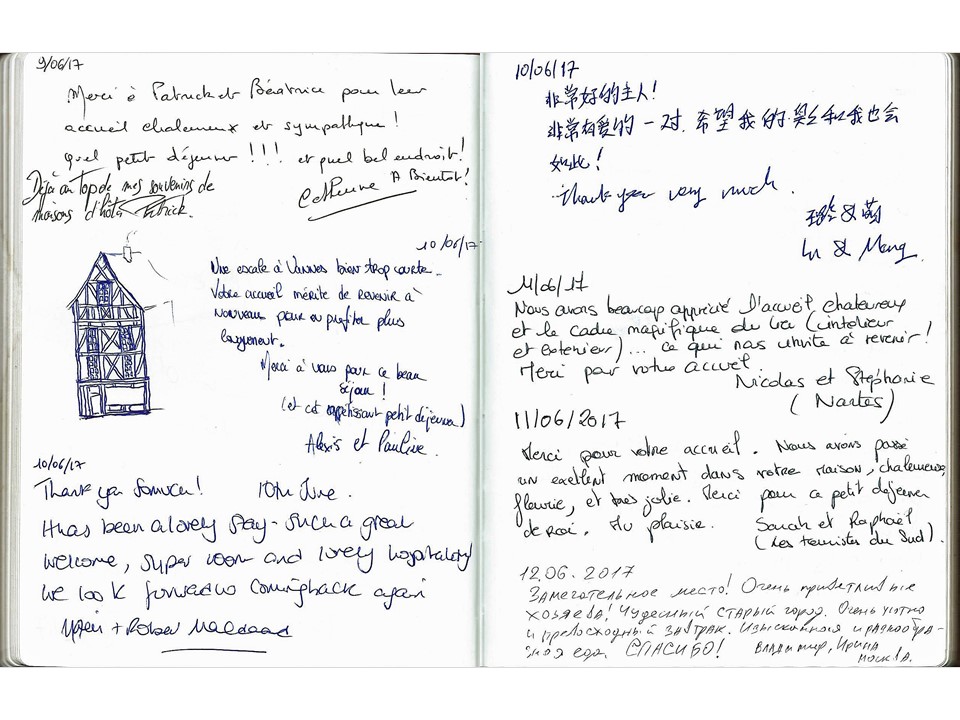 9/06/17
Merci à Patrick et Béatrice pour leur
accueil chaleureux et sympathique !
Quel petit déjeuner !!! et quel bel endroit !
Catherine A Bientôt !
Déjà au Top de mes souvenirs de
maisons d'hôte Patrick.
10/06/17
Une escale à Vannes bien trop courte.
Votre accueil mérite de revenir à
nouveau pour en profiter plus
longuement.
Merci à vous pour ce beau
séjour !
(et cet appétissant petit déjeuner)
Alexis et Pauline.
10/06/17
Thank you so much! 10th June.
It has been a lovely stay - such a great
welcome, super room and lovely hospitality
we look forward to coming back again
+ Robert
10/06/17
非常好的主人!
非常有爱的一对. 希望我的 和我也会
如此!
Thank you very much.
& 萌
Lu & Meng
11/06/17
Nous avons beaucoup apprécié l'accueil chaleureux
et le cadre magnifique du lieu (intérieur
et extérieur)... ce qui nous invite à revenir !
Merci pour votre accueil
Nicolas et Stéphanie
(Nantes)
11/06/2017
Merci pour votre accueil. Nous avons passé
un excellent moment dans votre maison, chaleureuse,
fleurie, et très jolie. Merci pour ce petit déjeuner
de roi. Au plaisir. Sarah et Raphaël
(Les touristes du Sud).
12.06.2017
Замечательное место! Очень приветливые
хозяева! Чудесный старый город. Очень уютно
и превосходный завтрак. Изысканная и разнообра-
зная еда. СПАСИБО! Владимир, Ирина
Москва.